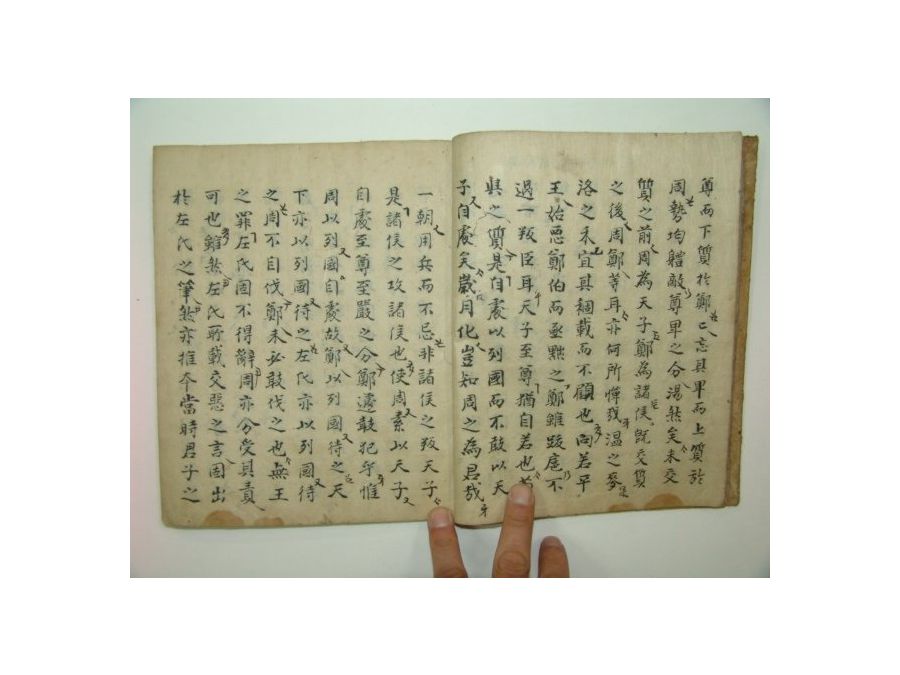 尊而下質於鄭〻忘其卑而上質於
周勢均體敵尊卑之分湯然矣未交
質之前周為天子鄭為諸侯旣交質
之後周鄭等耳亦何所憚㦲溫之麥
洛之禾宜其稛載而不顧也向若平
王始惡鄭伯而亟黜之鄭雖跋扈不
過一叛臣耳天子至尊猶自若也若
與之質是自處以列國而不敢以天
子自處矣歲月化豈知周之為君㦲
一朝用兵而不忌非諸侯之叛天子
是諸侯之攻諸侯也使周素以天子
自處至尊至嚴之分鄭遽敢犯乎惟
周以列國自處故鄭以列國待之天
下亦以列國待之左氏亦以列國待
之周不自伐鄭未必敢伐之也無王
之罪左氏固不得辭周亦分受其責
可也雖然左氏所載交惡之言固出
於左氏之筆然亦推本當時君子之